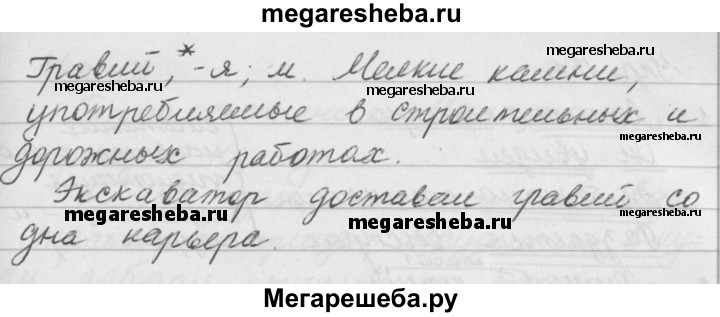 megaresheba.ru
Гравий,* -я; м. Мелкие камни,
megaresheba.ru
megaresheba.ru
употребляемые в строительных и
megaresheba.ru
дорожных работах.
megaresheba.ru
Экскаватор доставал гравий со
megaresheba.ru
megaresheba.ru
дна карьера.
megaresheba.ru
Мегарешеба.ру